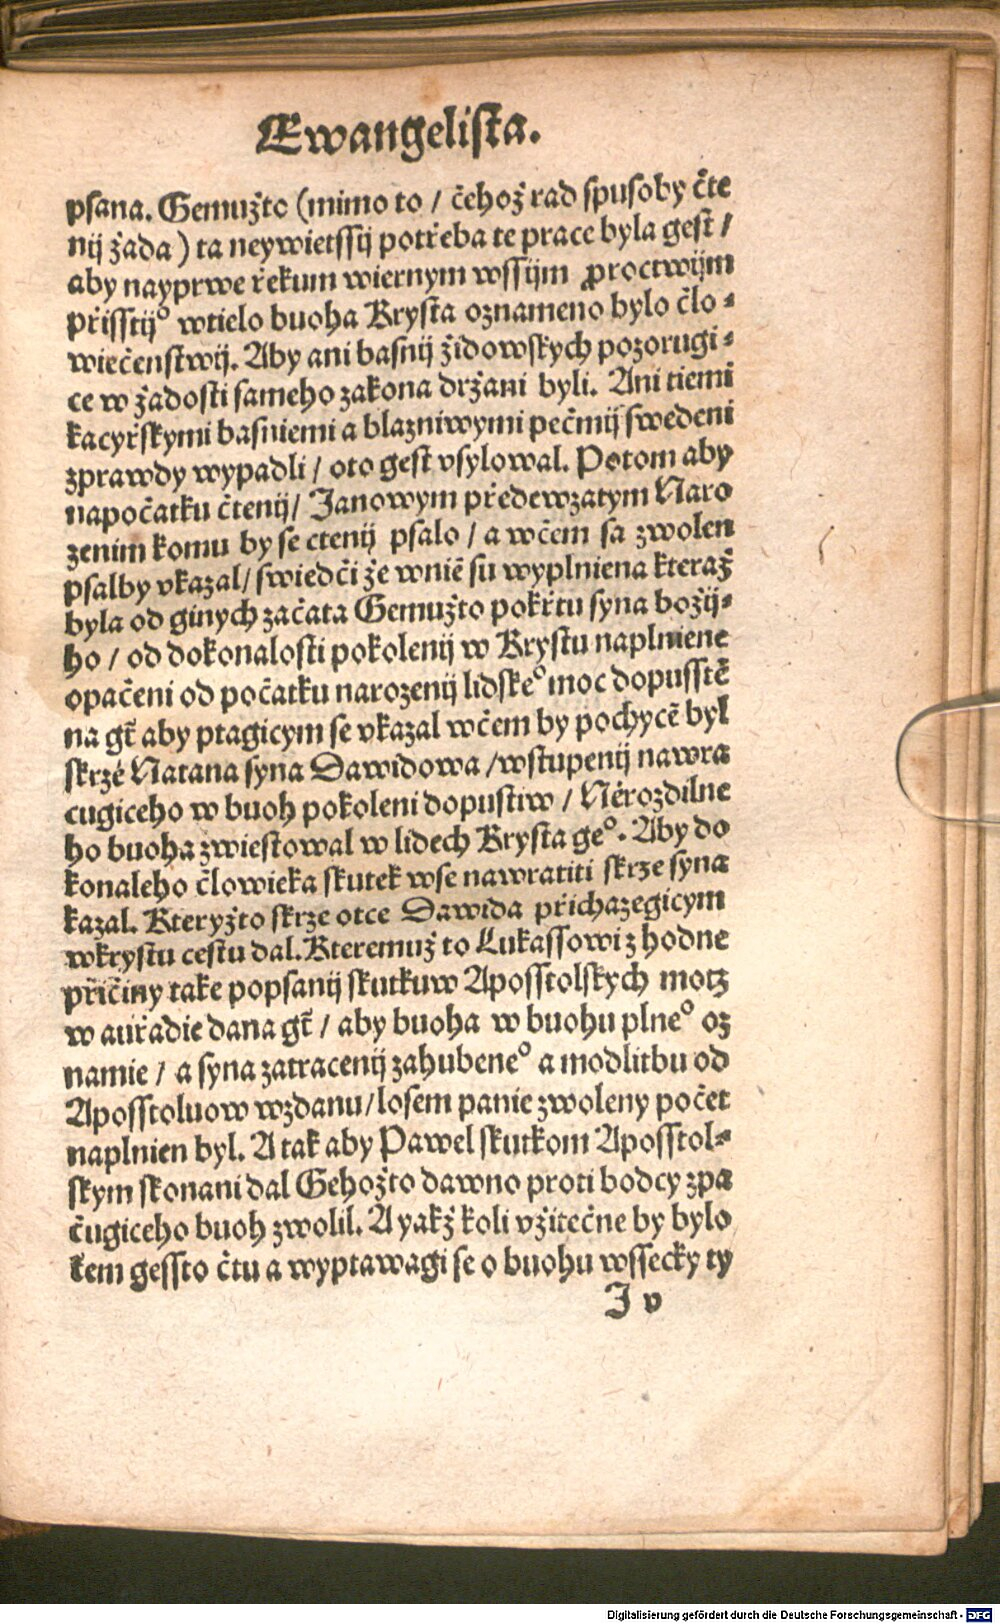 Ewangelista.
psana. Gemužto (mimo to / čehož rad spusoby čte
nij žada) ta neywietssij potřeba te prace byla gest /
aby nayprwe řekum wiernym wssijm proctwijm
přisstij° wtielo buoha Krysta oznameno bylo člo-
wiečenstwij. Aby ani basnij židowskych pozorugi-
ce w žadosti sameho zakona držani byli. Ani tiemi
kacyřskymi basniemi a blazniwymi pečmij swedeni
zprawdy wypadli / oto gest vsylowal. Potom aby
napočatku čtenij / Janowym předewzatym Naro
zenim komu by se ctenij psalo / a wčem sa zwolen
psalby vkazal / swiedči že wniē su wyplniena kteraž
byla od ginych začata Gemužto pokřtu syna božij-
ho / od dokonalosti pokolenij w Krystu naplniene
opačeni od počatku narozenij lidske° moc dopusstē
na gt̄ aby ptagicym se vkazal wčem by pochycē byl
skrzé Natana syna Dawidowa / wstupenij nawra
cugiceho w buoh pokoleni dopustiw / Nērozdilne
ho buoha zwiestowal w lidech Krysta ge°. Aby do
konaleho člowieka skutek wse nawratiti skrze syna
kazal. Kteryžto skrze otce Dawida přichazegicym
wkrystu cestu dal. Kteremuž to Lukassowi z hodne
přičiny take popsanij skutkuw Aposstolskych motz
w auřadie dana gt̄ / aby buoha w buohu plne° oz
namie / a syna zatracenij zahubene° a modlitbu od
Aposstoluow wzdanu / losem panie zwoleny počet
naplnien byl. A tak aby Pawel skutkom Aposstol-
skym skonani dal Gehožto dawno proti bodcy zpa
čugiceho buoh zwolil. A yakž koli vžitečne by bylo
tem gessto čtu a wyptawagi se o buohu wssecky ty
J v
Digitalisierung gefördert durch die Deutsche Forschungsgemeinschaft - DFG